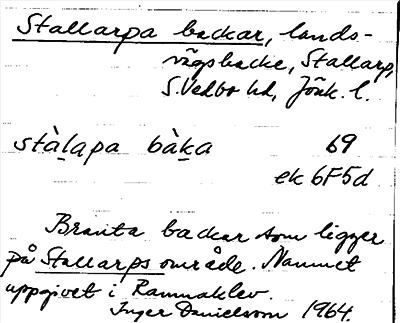 Stallarpa backar, lands-
vägsbacke, Stallarp,
S. Vedbo hd, Jönk. l.
stàlapa bàka 69
ek 6F5d
Branta backar som ligger
på Stallarps område. Namnet
uppgivet i Ramnaklev.
Inger Danielsson 1964.